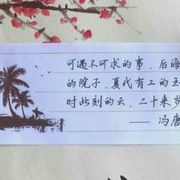 可遇不可求的事，后海
的院子，夏代有工的玉
时此刻的云，二十来岁
—— 冯唐